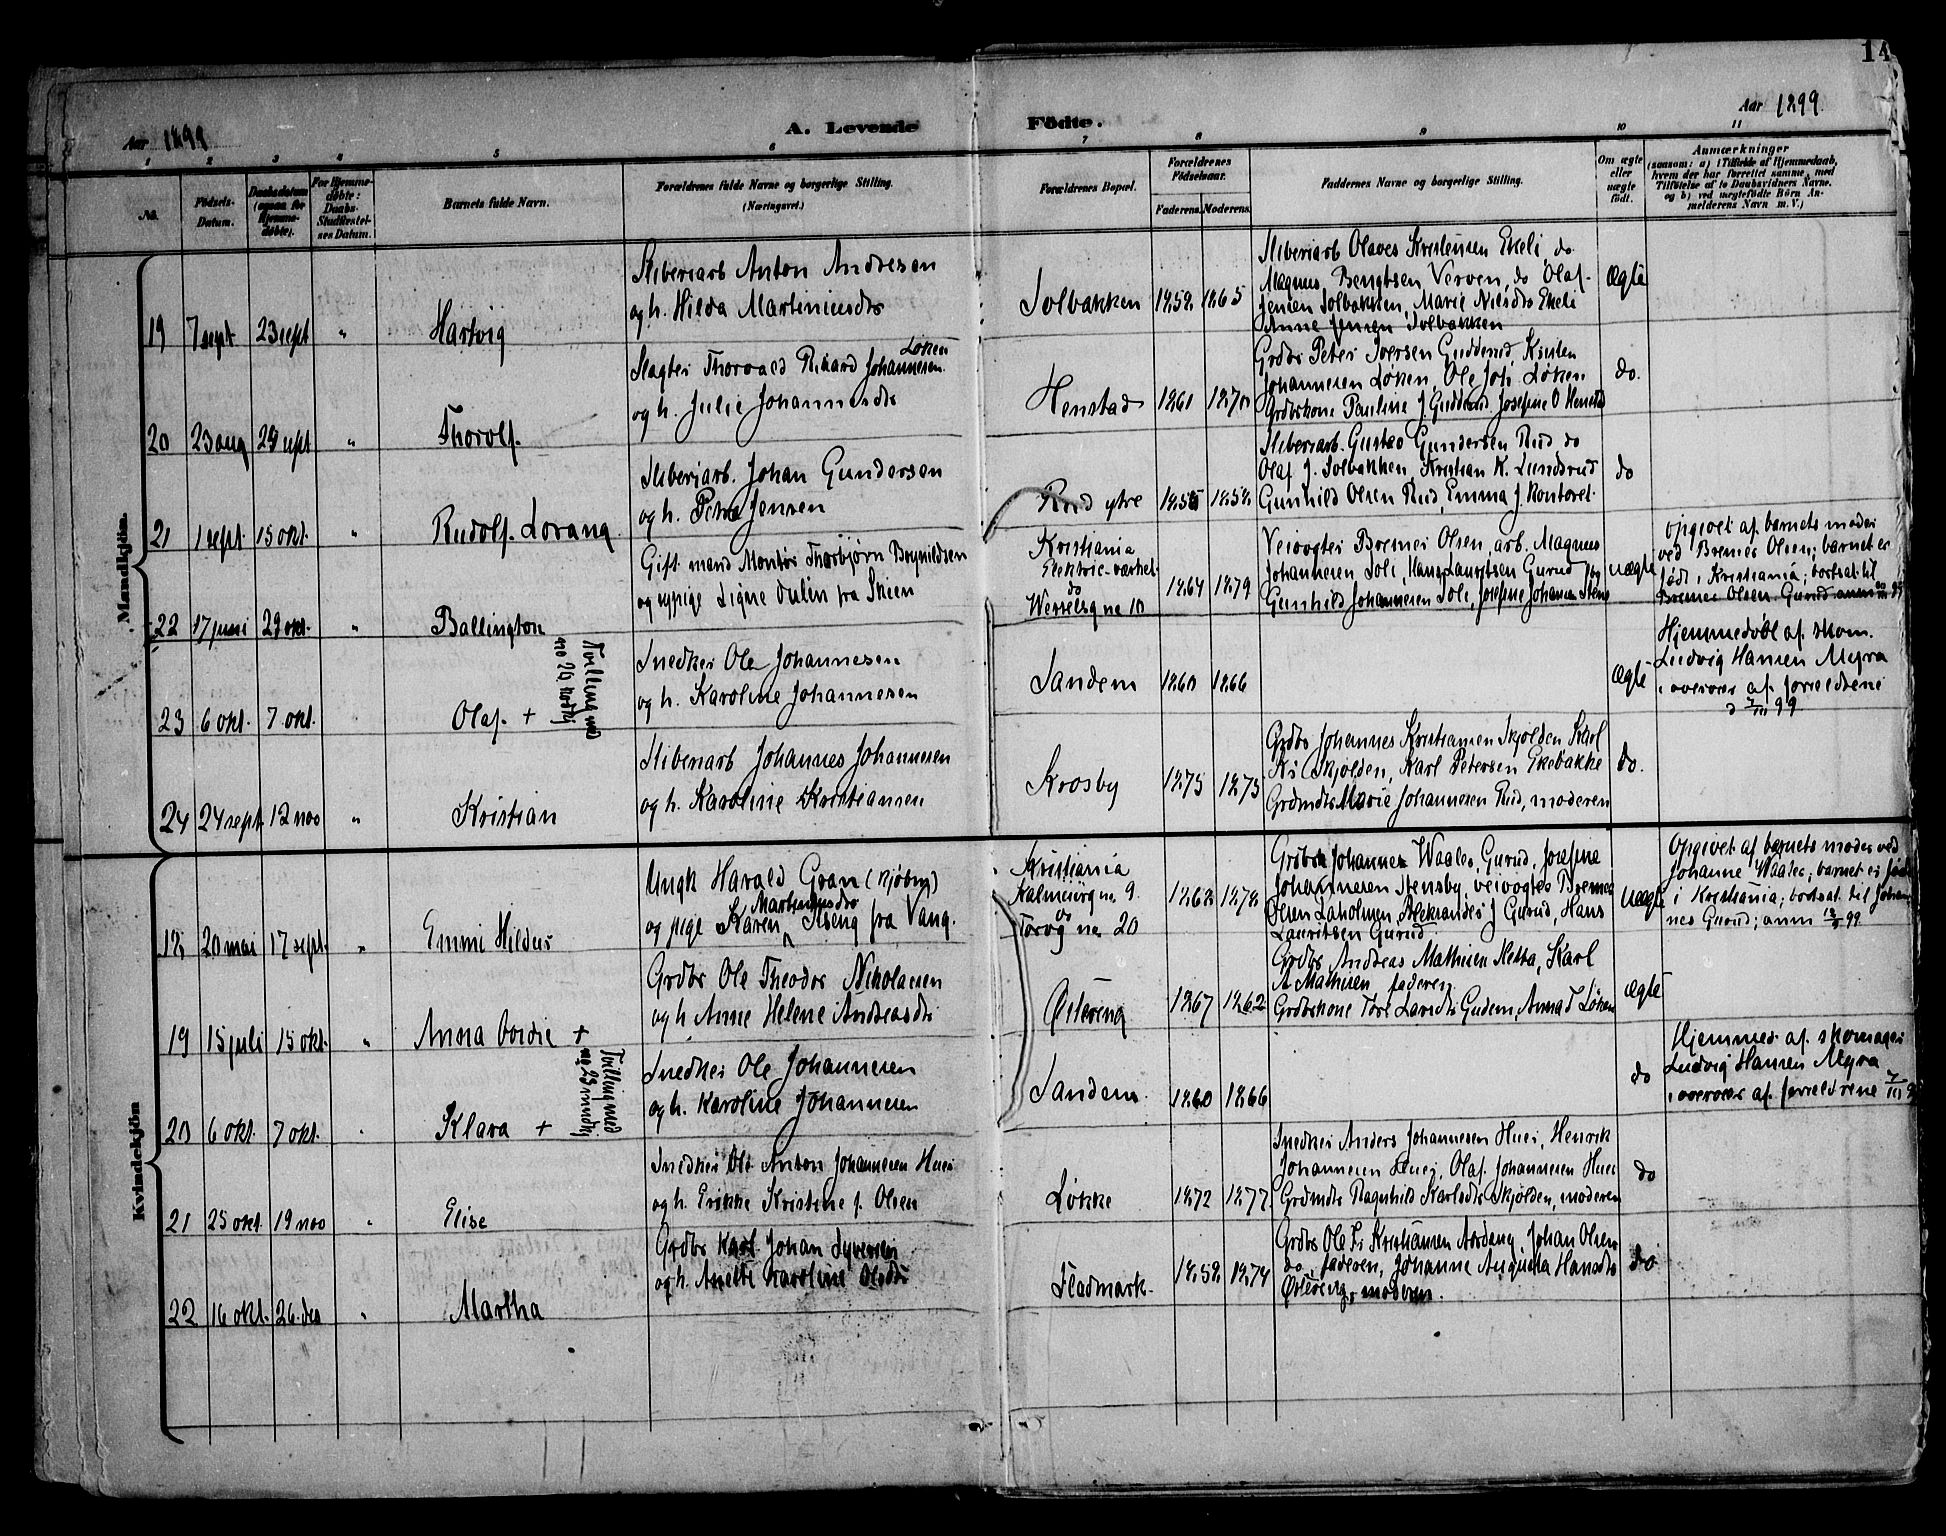 14
Aar 1899
A. Levende Födte.
Aar 1899.
1 2 3 4 5 6 7 8 9 10 11
No.
Födsels-
Datum.
Daabsdatum
(ogsaa for
Hjemme-
döbte).
For Hjemme-
döbte:
Daabs-
Stadfæstel-
ses Datum.
Barnets fulde Navn.
Forældrenes fulde Navne og borgerlige Stilling.
(Næringsvei.)
Forældrenes Bopæl.
Forældrenes
Födselsaar.
Faderens. Moderens.
Faddernes Navne og borgerlige Stilling.
Om ægte
eller
uægte
födt.
Anmærkninger
(saasom: a) i Tilfælde af Hjemmedaab,
hvem der har forrettet samme, med
Tilföielse af to Daabsvidners Navne.
og b) ved uægtefödte Börn An-
melderens Navn m. V.)
Mandkjön.
19 7 sept 23 sept " Hartvig
Sliberiarb Anton Andresen
og h. Hilda Martiniusdtr
Solbakken 1858 1865
Sliberiarb Olaves Kristensen Ekeli, do
Magnus Bengtsen Verven, do Olaf
Jensen Solbakken, Marie Nilsdtr Ekeli
Anne Jensen Solbakken
Ægte
20 23 aug 24 sept " Thorolf.
Slagter Thorvald Rikard Johannesen Løken
og h. Julie Johannesdtr
Henstad 1861 1870
Grdbr Peter Iversen Gudderud, Kristen
Johannesen Løken, Ole Joh. Løken
Grdbrkone Pauline J. Gudderud, Josefine O Henstad
do.
21 1 sept. 15 okt. " Rudolf Lorang
Sliberiarb. Johan Gundersen
og h. Petra Jensen
Rud ytre 1855 1858
Sliberiarb. Gustav Gundersen Rud do
Olaf J. Solbakken, Kristian K. Lundsrud
Gunhild Olsen Rud, Emma J. Kontoret
do
22 17 juni 29 okt. " Ballington
Gift mand Montør Thorbjørn Brynildsen
og pige Signe Dulin fra Skien
Kristiania
Elektric-værket
do
Wesselsg no 10 1864 1879
Veivogter Bremer Olsen, arb. Magnus
Johannesen Soli, Hans Lauritsen Gurud
Gunhild Johannesen Soli, Josefine Johannes Stens by
uægte
Opgivet af barnets moder
ved Bremer Olsen; barnet er
født i Kristiania; bortsat til
Bremer Olsen Gurud
23 6 okt. 7 okt. " Olaf. +
Tvilling med
no 20, kvdkj
Snedker Ole Johannesen
og h. Karoline Johannesen
Sandem 1860 1866
Ægte
Hjemmedøbt af skom.
Ludvig Hansen Myra
i overvær af forældrene
99
24 24 sept 12 nov " Kristian
Sliberiarb Johannes Johannesen
og h. Karoline Kristiansen
Krosby 1875 1875
Grdbr Johannes Kristiansen Skjolden, Karl
Kr. Skjolden, Karl Petersen Ekebakke
Grdmdtr Marie Johannesen Rud, moderen
do.
Kvindekjön
18 20 mai 17 sept. " Emmi Hildur
Ungk Harald Gran (kjøbm)
og pige Karen Martinusdtr Aseng fra Vang.
Kristiania
Kalmeierg no. 9.
do
Torvg no. 20 1868 1878
Grdbr Johannes Waaler, Gurud, Josefine
Johannesen Stensby, veivogter Bremer
Olsen Laholmen, Aleksander J Gurud, Hans
Lauritsen Gurud
Uægte
Opgivet af barnets moder ved
Johanne Waaler; barnet er født
i Kristiania; bortsat til Johan-
nes Gurud; anm 99
19 15 juli 15 okt. " Anna Ovidie +
Grdbr Ole Theodor Nikolaisen
og h Anne Helene Andreasdtr
Østereng 1867 1862
Grdbr Andreas Mathisen Netta, Karl
A Mathisen faderen
Grdbrkone Tore Larsdtr Gudem, Anna T Løken
Ægte
20 6 okt. 7 okt. " Klara +
Tvilling med
no 23 mandkj
Snedker Ole Johannesen
og h. Karoline Johannesen
Sandem. 1860 1866
do
Hjemmed. af skomager
Ludvig Hansen Myra
i overvær af forældrene
21 25 okt. 19 nov " Elise
Snedker Ole Anton Johannesen Huer
og h. Erikke Kristine f. Olsen
Løkke 1872 1877
Snedker Anders Johannesen Huer, Henrik
Johannesen Huer, Olaf Johannesen Huer
Grdmdtr Ragnhild Karlsdtr Skjolden, moderen
do
22 16 okt. 26 des " Martha
Grdbr Karl Johan Syversen
og h. Anette Karoline Olsdtr
Fladmark. 1858 1874
Grdbr Ole Kr Kristiansen Nordeng, Johan Olsen
do, faderen, Johanne Augusta Hansdtr
Østereng, moderen.
do